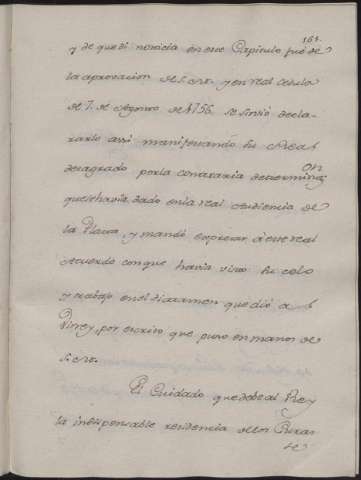 161.
y de que di noticia en este Capitulo fué de
la aprovacion de S. M. y en real cedula
de 7. de Agosto de 1756. se sirvió decla-
rarlo assi manifestando su Real
desagrado por la contraria determinon
que se havia dado en la real Audiencia de
la Plata, y mandó expresar á este real
Acuerdo con que havia visto su celo
y trabajo en el dictamen que dió al
Virrey, por escrito que puso en manos de
S. M.
El Cuidado que debe al Rey
la indispensable residencia de los Curas
se